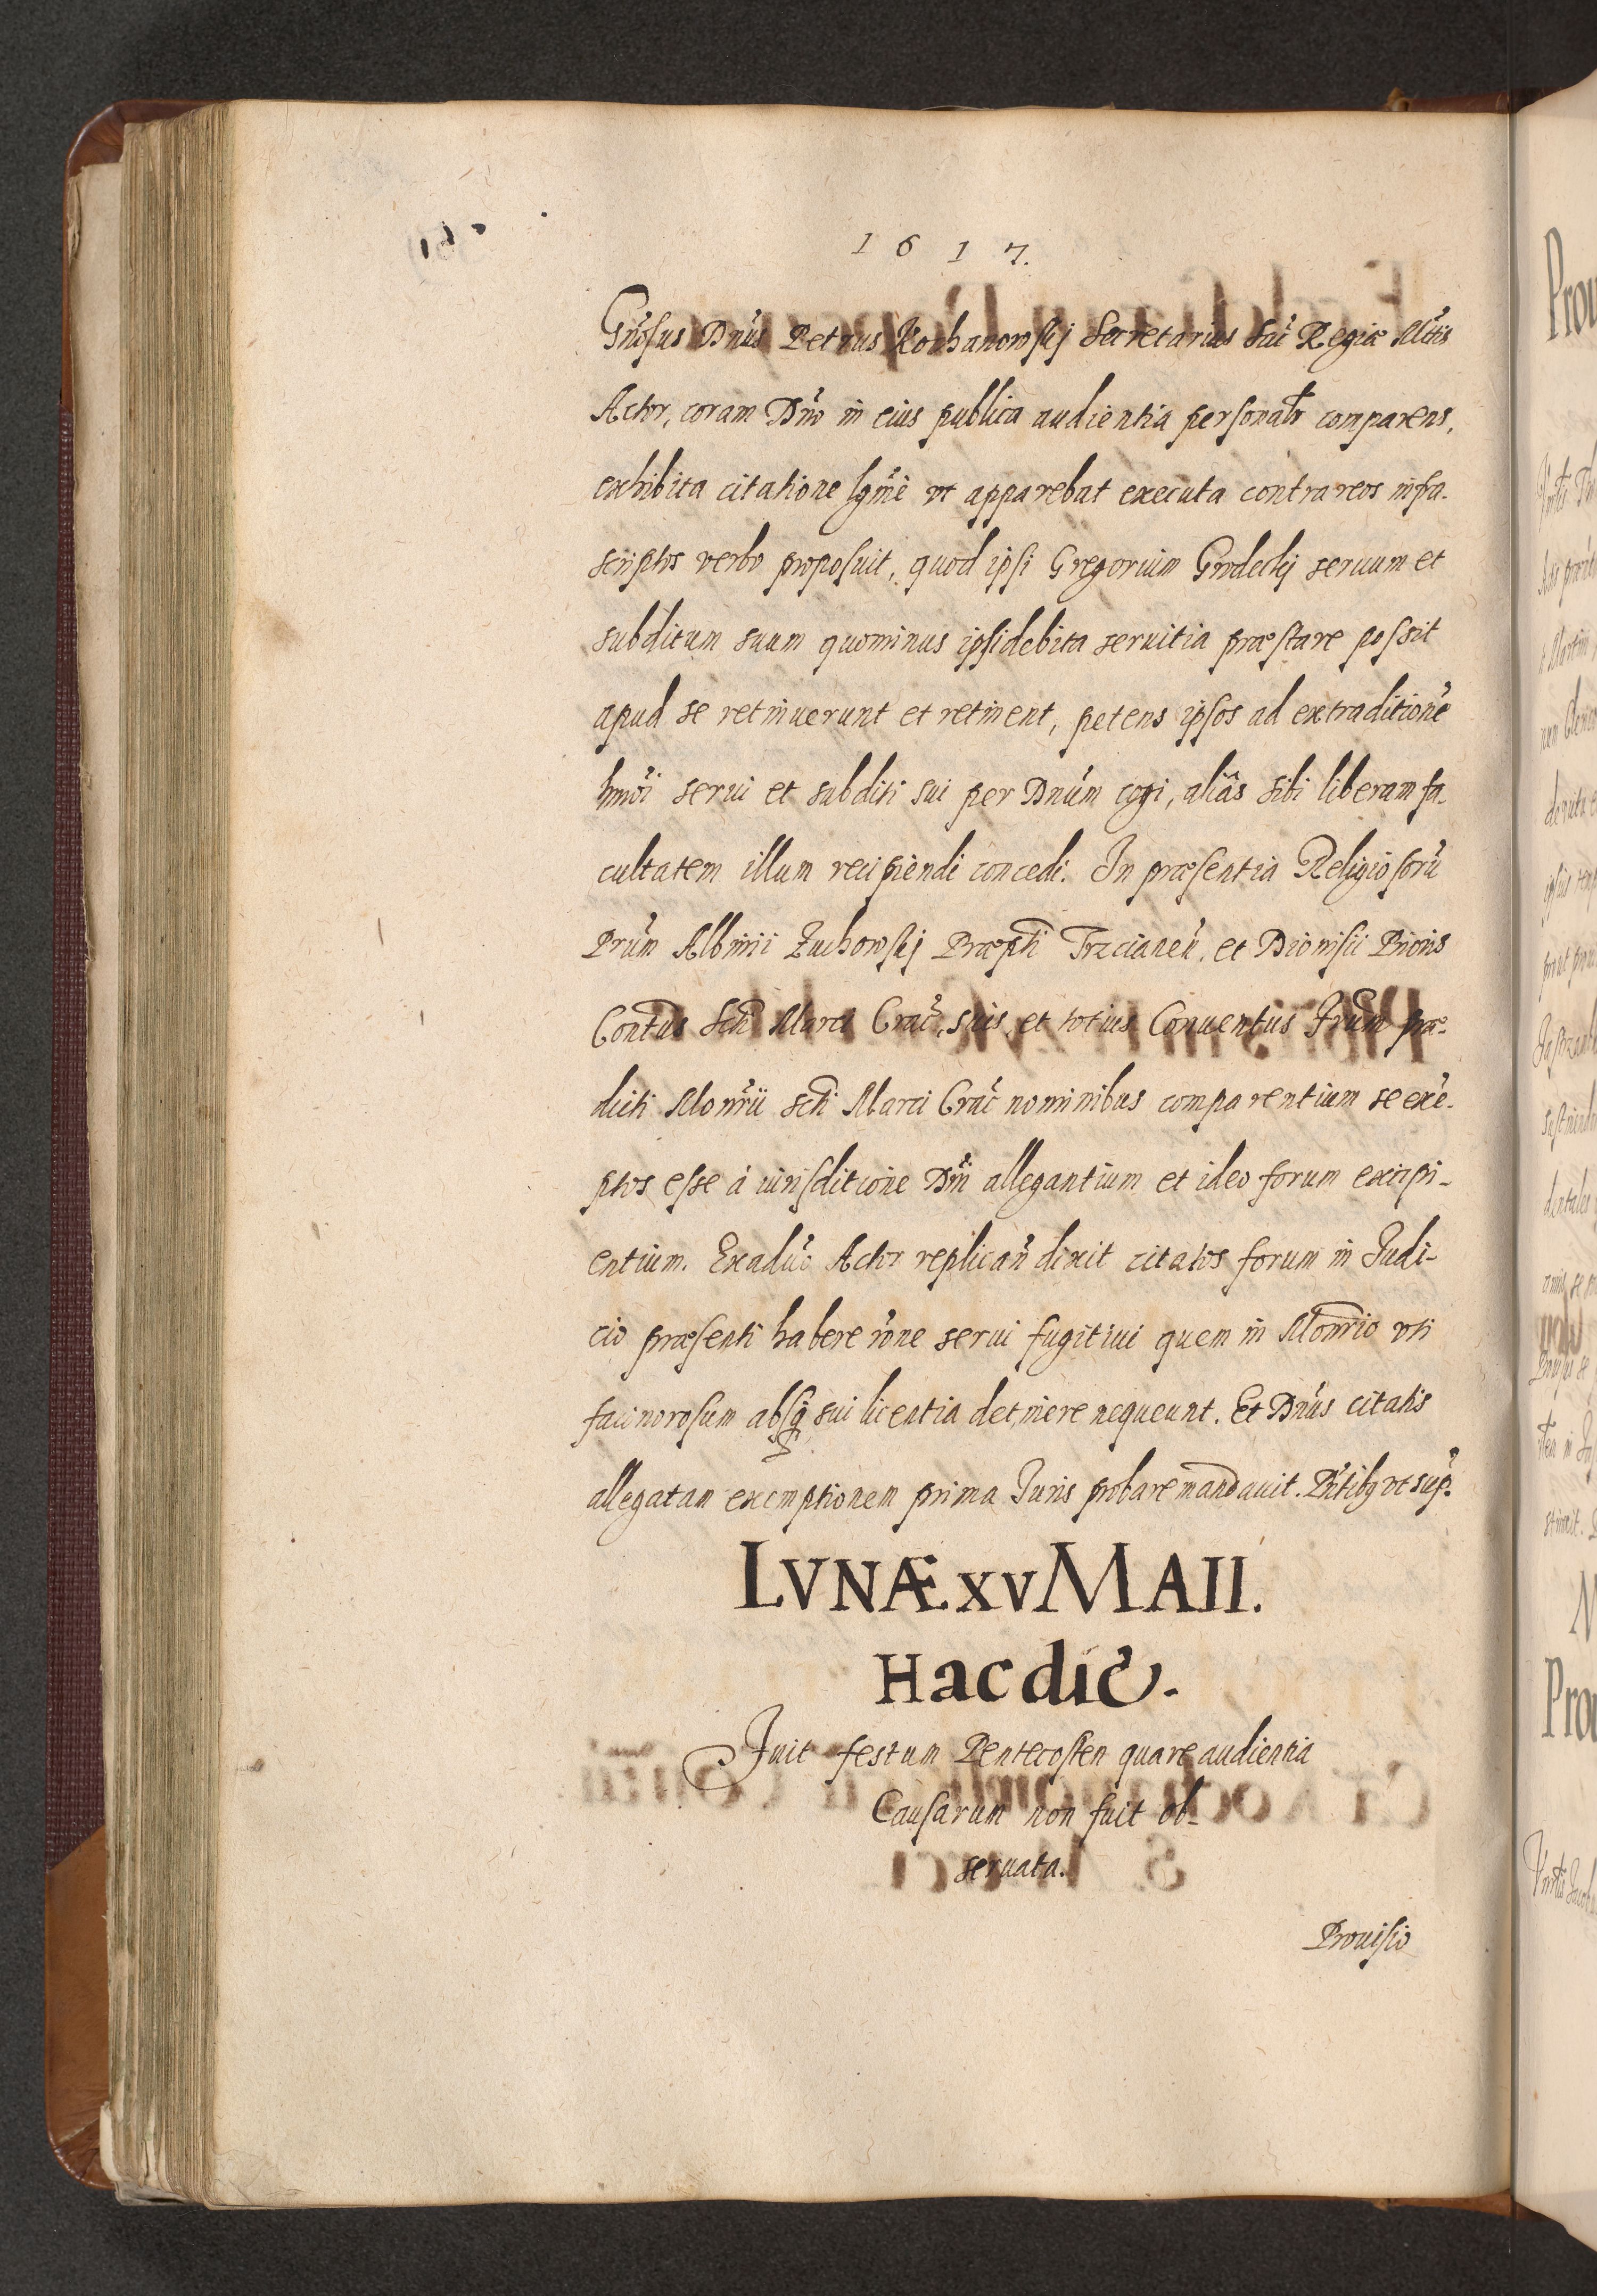 1 6 1 7.
Gn̄osus Dn̄us Petrus Kochanowskij Secretarius Sac̄ Regiæ Mt̄tis
Actor, coram Dn̄o in eius publica audientia personalr̄ comparens,
exhibita citatione lgm̄e vt apparebat executa contra reos infra-
scriptos verbo proposuit, quod ipsi Gregorium Grodeckij seruum et
subditum suum quominus ipsi debita seruitia præstare possit
apud se retinuerunt et retinent, petens ipsos ad extraditionē
hmōi serui et subditi sui per Dnūm cogi, aliâs sibi liberam fa-
cultatem illum recipiendi concedi. In præsentia Religiosorū
Prūm Albini Zuchowskij Præpti Trzcianen̄, et Dionisii Prioris
Contus Scti Marci Crac̄, suis et totius Conuentus Frūm præ-
dicti Monrii Scti Marci Crac̄ nominibus comparentium se exē-
ptos esse à iurisditione Dn̄i allegantium et ideo forum excipi-
entium. Ex aduō Actor replican̄ dixit citatos forum in Judi-
cio præsenti habere rōne serui fugitiui quem in Monrio vti
facinorosum absq̄ sui licentia detinere nequeunt. Et Dn̄us citatis
allegatam exemptionem prima Juris probare mandauit. Pn̄tibq vt sup̄.
LVNÆ XV MAII.
Hac die.
Fuit festum Pentecosten quare audientia
Causarum non fuit ob-
seruata.
Prouisio